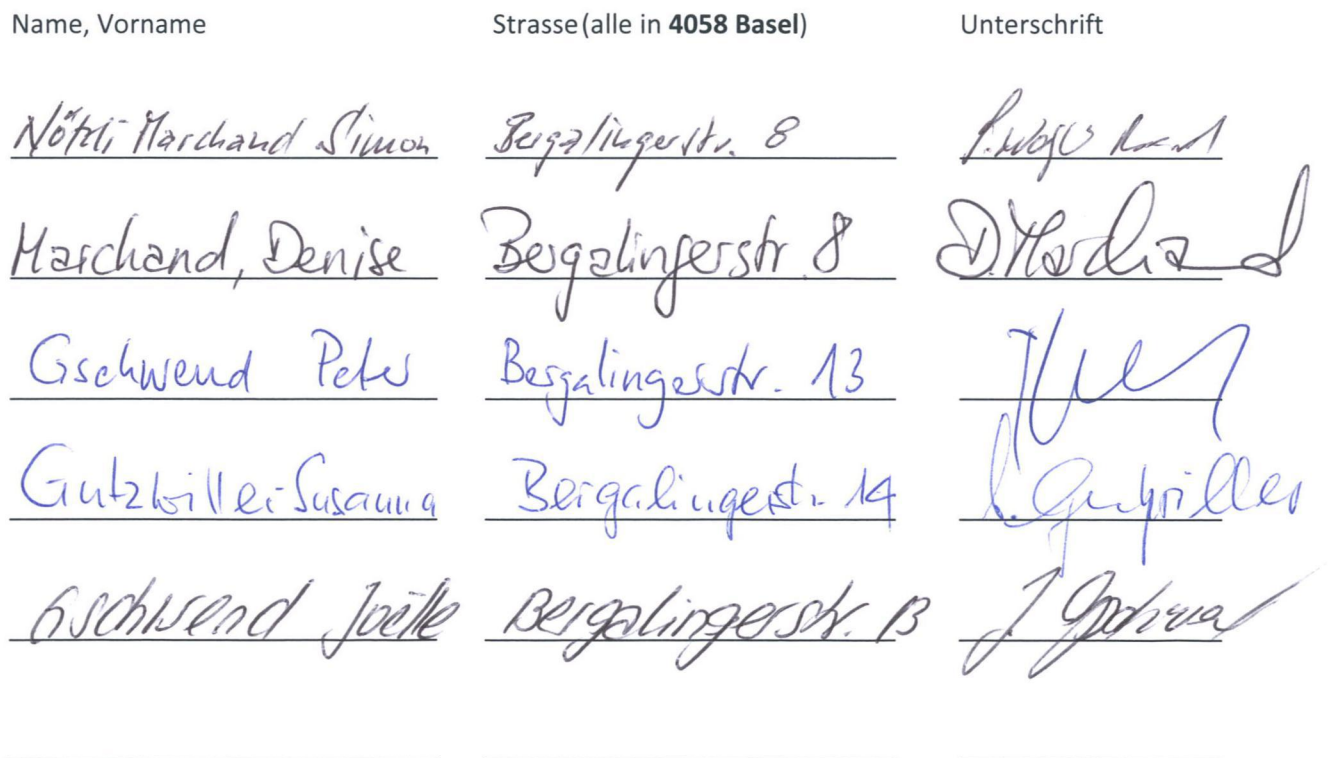 Name, Vorname Strasse (alle in 4058 Basel) Unterschrift
Marchand Simon Bergalingerstr. 8
Marchand, Denise Bergalingerstr. 8 D. Marchand
Gschwend Peter Bergalingerstr. 13
Gutzwiller Susanna Bergalingerstr. 14 S. Gutzwiller
Gschwend Joëlle Bergalingerstr. 13 J. Gschwend